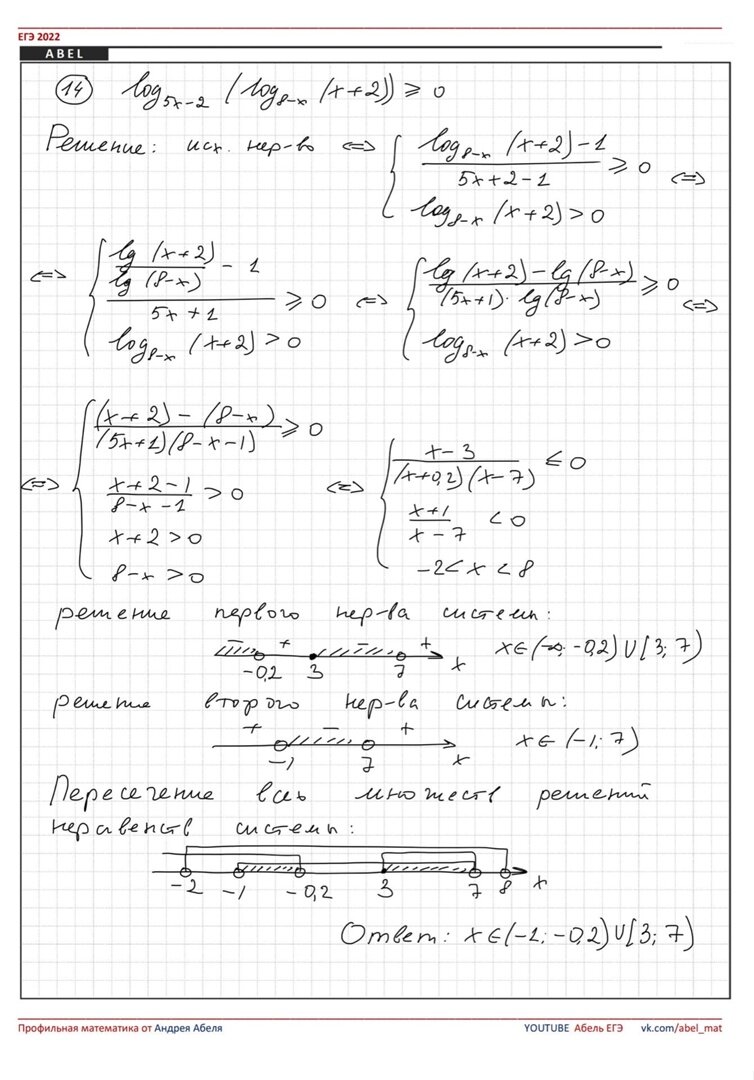 ЕГЭ 2022
ABEL
14 log_{5x-2} (log_{8-x} (x+2)) ⩾ 0
Решение: исх. нер-во ⇔ { (log_{8-x} (x+2) - 1)/(5x+2-1) ⩾ 0 ⇔
log_{8-x} (x+2) > 0
⇔ { (lg (x+2)/lg (8-x) - 1)/(5x+1) ⩾ 0 ⇔ { (lg (x+2) - lg (8-x))/((5x+1)· lg (8-x)) ⩾ 0 ⇔
log_{8-x} (x+2) > 0 log_{8-x} (x+2) > 0
⇔ { ((x+2) - (8-x))/((5x+1)(8-x-1)) ⩾ 0 ⇔ { (x-3)/((x+0,2)(x-7)) ≤ 0
(x+2-1)/(8-x-1) > 0 (x+1)/(x-7) < 0
x+2 > 0
8-x > 0 -2 < x < 8
решение первого нер-ва системы:
- + - + x∈(-∞; -0,2)∪[3; 7)
-0,2 3 7 x
решение второго нер-ва системы:
+ - + x∈(-1; 7)
-1 7 x
Пересечение всех множеств решений
неравенств системы:
-2 -1 -0,2 3 7 8 x
Ответ: x∈(-1; -0,2)∪[3; 7)
Профильная математика от Андрея Абеля YOUTUBE Абель ЕГЭ vk.com/abel_mat